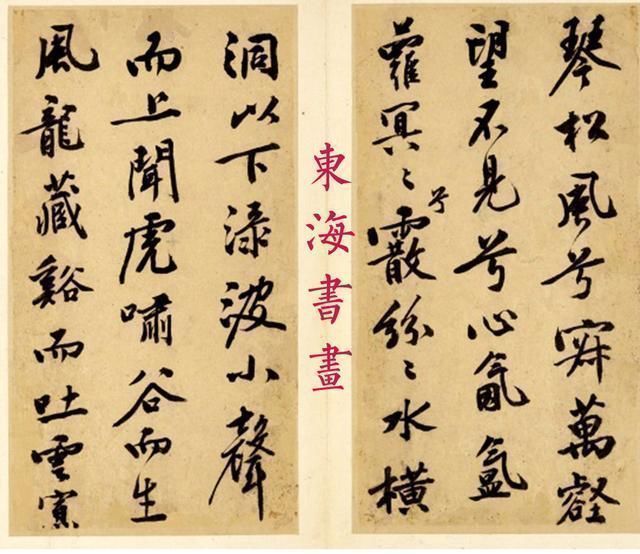 琴松風兮寂萬壑
望不見兮心氤氳
蘿冥〻兮霰紛〻水橫
洞以下淥波小聲
而上聞虎嘯谷而生
風龍藏谿而吐雲寡
東海書畫